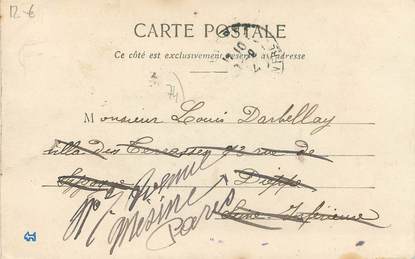 12 €
CARTE POSTALE
Ce côté est exclusivement réservé à l'adresse
Monsieur Louis Darbellay
villa des Terrasses 12 rue de
Dieppe
Seine Inférieure
Avenue
Messine
Paris